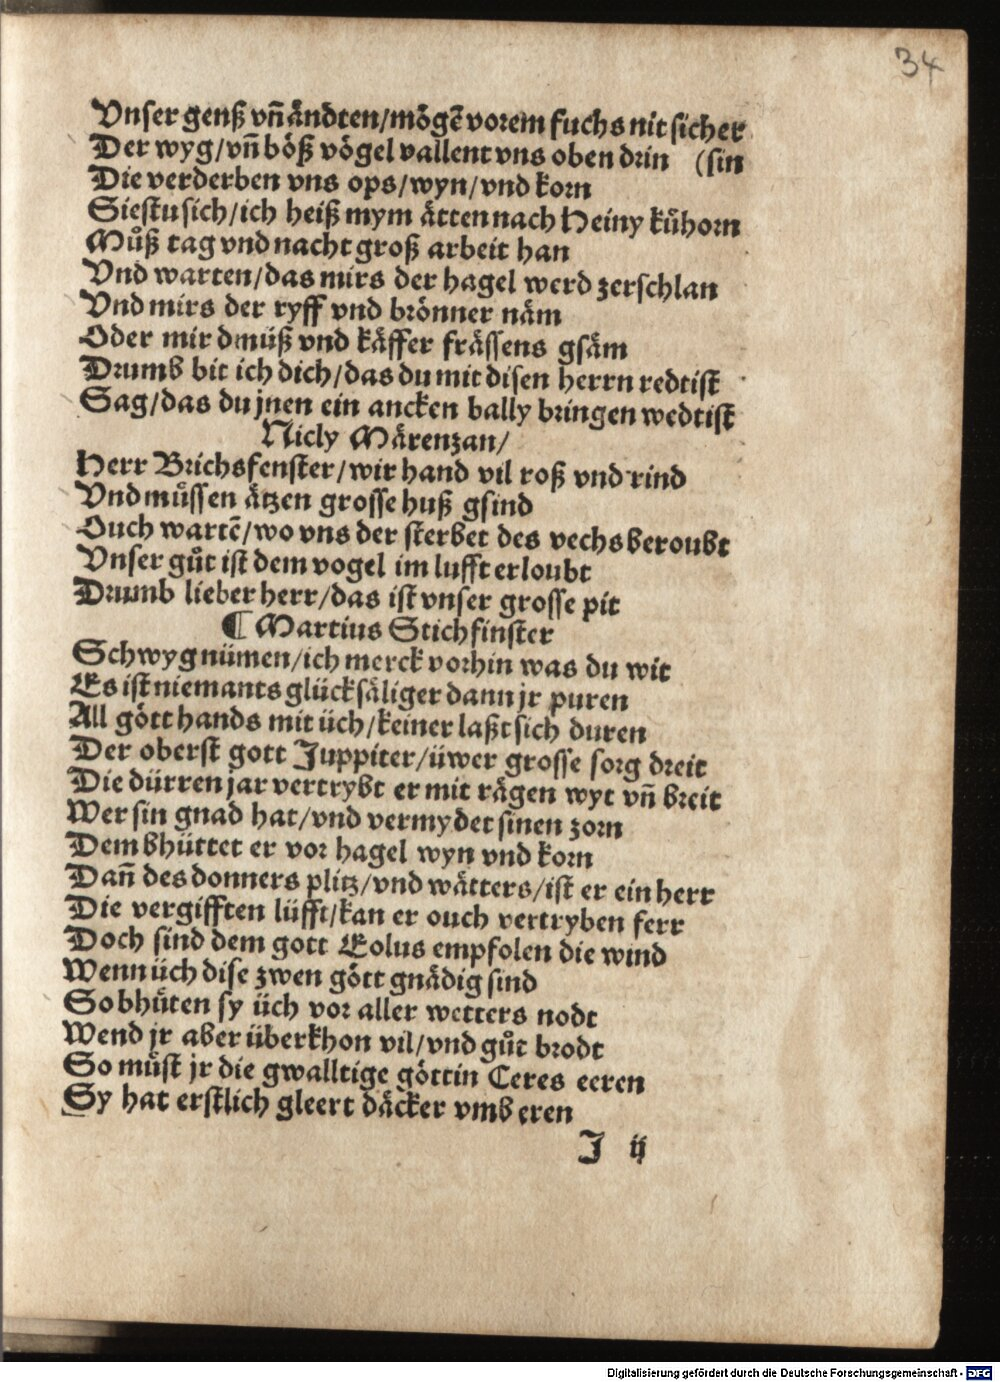 34
Vnser genß vñ ändten/mögẽ vorem fuchs nit sicher
Der wyg/vñ böß vögel vallent vns oben drin (sin
Die verderben vns ops/wyn/vnd korn
Siestu sich/ich heiß mym ätten nach Heiny kůhorn
Můß tag vnd nacht groß arbeit han
Vnd warten/das mirs der hagel werd zerschlan
Vnd mirs der ryff vnd brönner näm
Oder mir dmüß vnd käffer frässens gsäm
Drumb bit ich dich/das du mit disen herrn redtist
Sag/das du jnen ein ancken bally bringen wedtist
Nicly Märenzan/
Herr Brichsfenster/wir hand vil roß vnd rind
Vnd müssen ätzen grosse huß gsind
Ouch wartẽ/wo vns der sterbet des vechs beroubt
Vnser gůt ist dem vogel im lufft erloubt
Drumb lieber herr/das ist vnser grosse pit
¶ Martius Stichfinster
Schwyg nümen/ich merck vorhin was du wit
Es ist niemants glücksäliger dann jr puren
All gött hands mit üch/keiner laßt sich duren
Der oberst gott Juppiter/üwer grosse sorg dreit
Die dürren jar vertrybt er mit rägen wyt vñ breit
Wer sin gnad hat/vnd vermydet sinen zorn
Dem bhüttet er vor hagel wyn vnd korn
Dañ des donners plitz/vnd wätters/ist er ein herr
Die vergifften lüfft/kan er ouch vertryben ferr
Doch sind dem gott Eolus empfolen die wind
Wenn üch dise zwen gött gnädig sind
So bhüten sy üch vor aller wetters nodt
Wend jr aber überkhon vil/vnd gůt brodt
So müst jr die gwalltige göttin Ceres eeren
Sy hat erstlich gleert däcker vmb eren
J ij
Digitalisierung gefördert durch die Deutsche Forschungsgemeinschaft - DFG